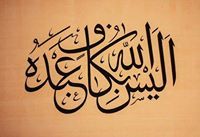 اليس الله بكاف عبده